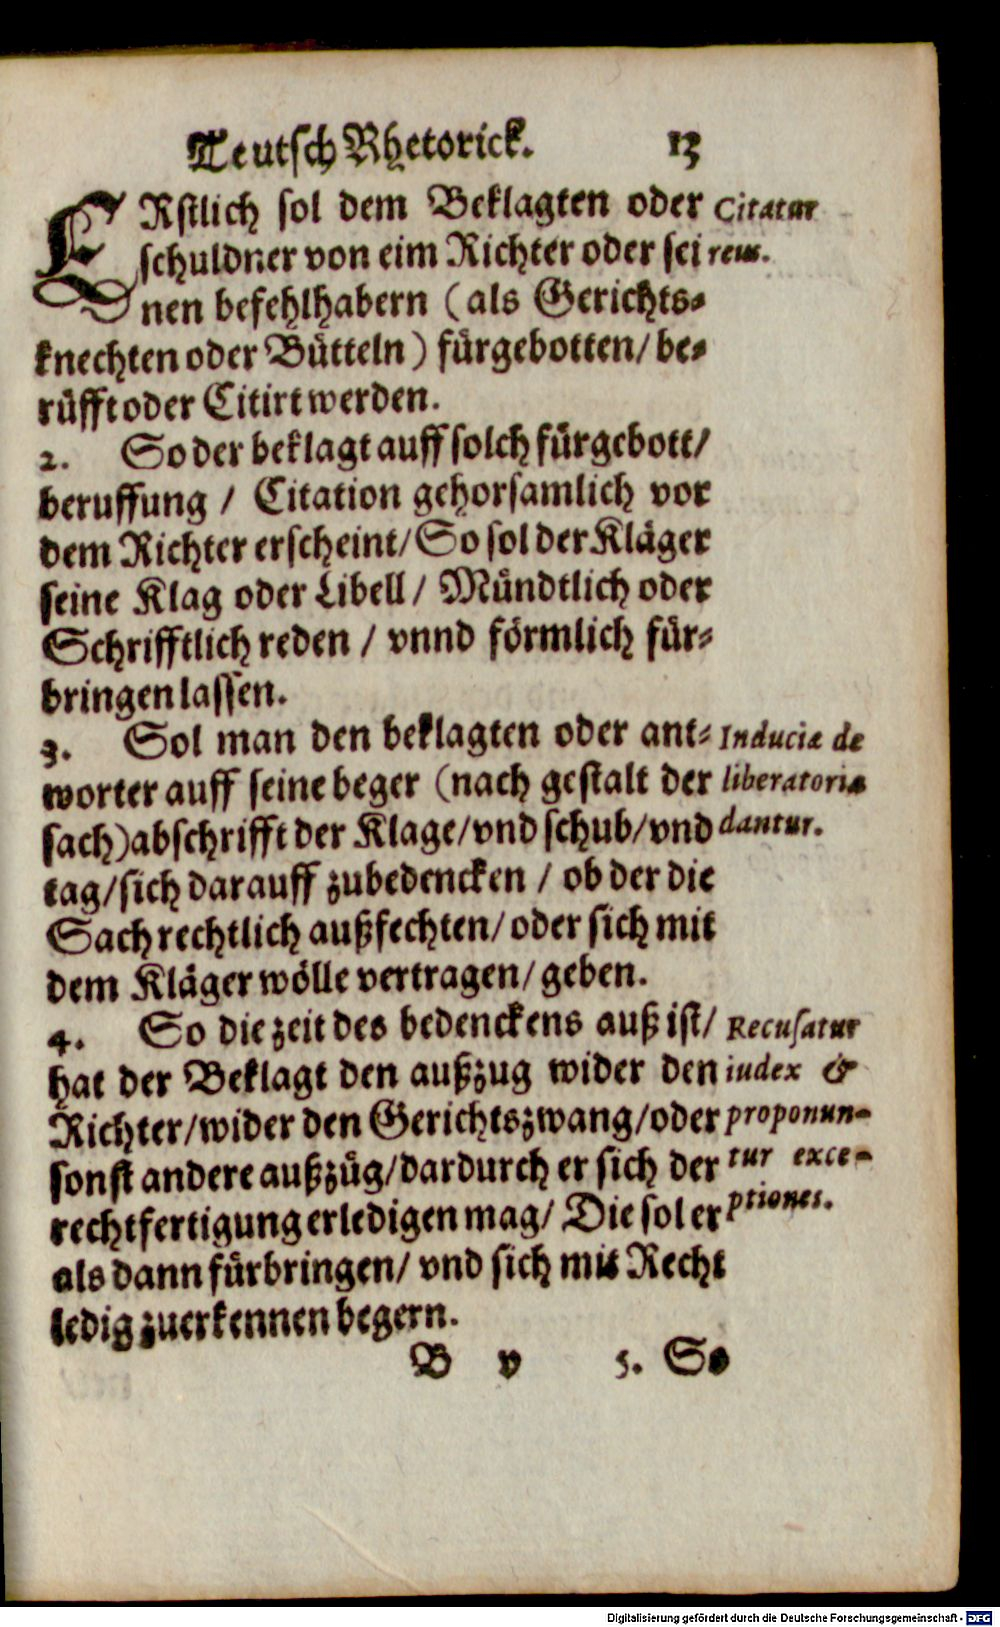 Teutsch Rhetorick. 13
ERstlich sol dem Beklagten oder
schuldner von eim Richter oder sei
nen befehlhabern (als Gerichts-
knechten oder Bütteln) fürgebotten/ be-
rüfft oder Citirt werden.
Citatur
reus.
2. So der beklagt auff solch fürgebott/
beruffung / Citation gehorsamlich vor
dem Richter erscheint/ So sol der Kläger
seine Klag oder Libell/ Mündtlich oder
Schrifftlich reden / vnnd förmlich für-
bringen lassen.
3. Sol man den beklagten oder ant-
worter auff seine beger (nach gestalt der
sach) abschrifft der Klage/ vnd schub/ vnd
tag/ sich darauff zubedencken / ob der die
Sach rechtlich außfechten/ oder sich mit
dem Kläger wölle vertragen/ geben.
Induciæ de
liberatoriæ
dantur.
4. So die zeit des bedenckens auß ist/
hat der Beklagt den außzug wider den
Richter/ wider den Gerichtszwang/ oder
sonst andere außzüg/ dardurch er sich der
rechtfertigung erledigen mag/ Die sol er
als dann fürbringen/ vnd sich mit Recht
ledig zuerkennen begern.
Recusatur
iudex &
proponun-
tur exce-
ptiones.
B v 5. So
Digitalisierung gefördert durch die Deutsche Forschungsgemeinschaft - DFG